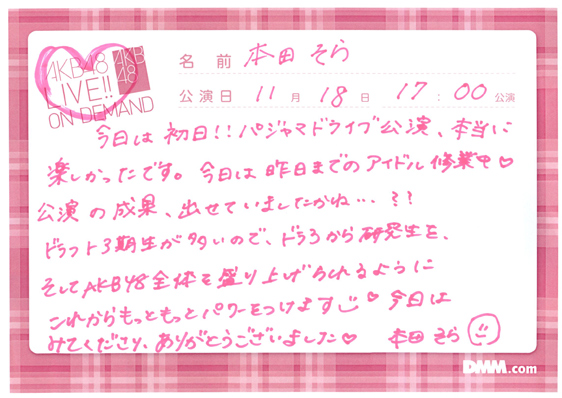 AKB48
LIVE!!
ON DEMAND
AKB
48
名前 本田 そら
公演日 11月 18日 17:00 公演
今日は初日!!パジャマドライブ公演、本当に
楽しかったです。今日は昨日までのアイドル修業中♡
公演の成果、出せていましたかね…??
ドラフト3期生が多いので、ドラ3から研究生を、
そしてAKB48全体を盛り上げられるように
これからもっともっとパワーをつけます♡ 今日は
みてくださり、ありがとうございました♡ 本田 そら
DMM.com